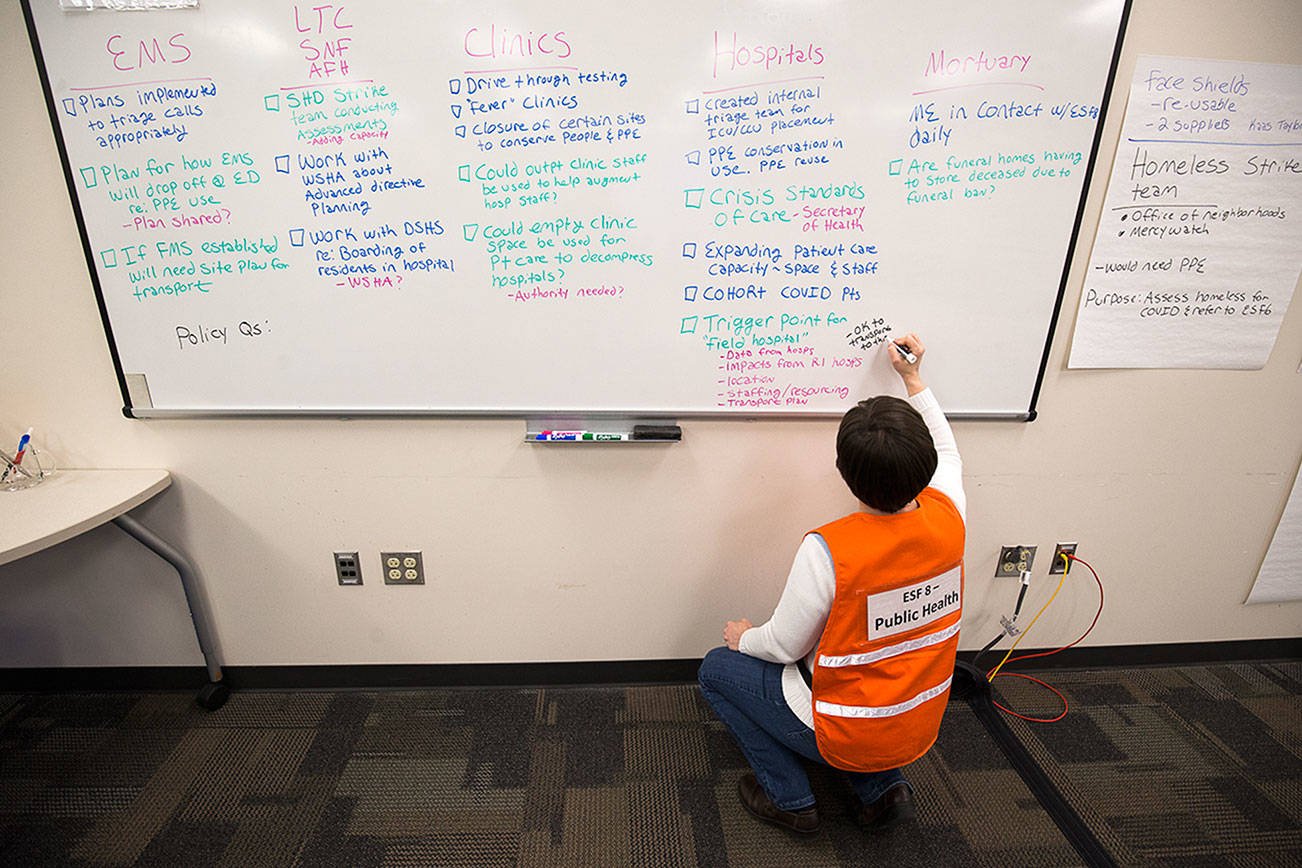 EMS
Plans implemented
to triage calls
appropriately
Plan for how EMS
will drop off @ ED
re: PPE use
- Plan shared?
If FMS established
will need site plan for
transport
Policy Qs:
LTC
SNF
AFH
SHD Strike
team conducting
Assessments
- Adding capacity
Work with
WSHA about
Advanced directive
Planning
Work with DSHS
re: Boarding of
residents in hospital
- WSHA?
Clinics
Drive through testing
"Fever" Clinics
Closure of certain sites
to conserve People & PPE
Could outpt clinic staff
be used to help augment
hosp staff?
Could empty clinic
space be used for
Pt care to decompress
hospitals?
- Authority needed?
Hospitals
Created internal
triage team for
ICU/CCU placement
PPE conservation in
use. PPE reuse
Crisis Standards
of Care - Secretary
of Health
Expanding patient care
capacity ~ space & staff
COHORT COVID Pts
Trigger point for
"field hospital"
- Data from hosps
- Impacts from R1 hosps
- location
- Staffing/resourcing
- Transport plan
- OK to
transport
to
Mortuary
ME in contact w/ESF8
daily
Are funeral homes having
to store deceased due to
funeral ban?
Face Shields
- re-usable
- 2 suppliers Kaas
Homeless Strike
team
• Office of neighborhoods
• Mercy watch
- would need PPE
Purpose: Assess homeless for
COVID & refer to ESF6
ESF 8 –
Public Health